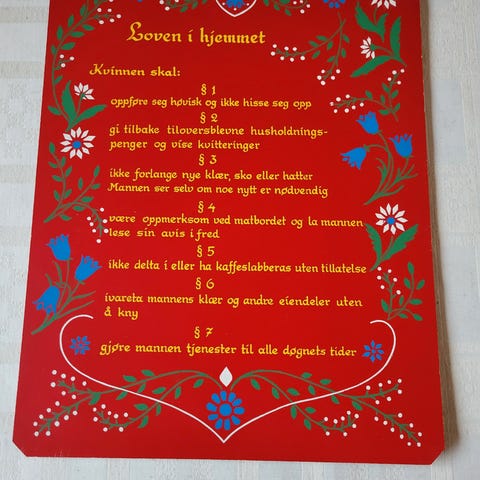 Loven i hjemmet
Kvinnen skal:
§ 1
oppføre seg høvisk og ikke hisse seg opp
§ 2
gi tilbake tiloversblevne husholdnings-
penger og vise kvitteringer
§ 3
ikke forlange nye klær, sko eller hatter
Mannen ser selv om noe nytt er nødvendig
§ 4
være oppmerksom ved matbordet og la mannen
lese sin avis i fred
§ 5
ikke delta i eller ha kaffeslabberas uten tillatelse
§ 6
ivareta mannens klær og andre eiendeler uten
å kny
§ 7
gjøre mannen tjenester til alle døgnets tider